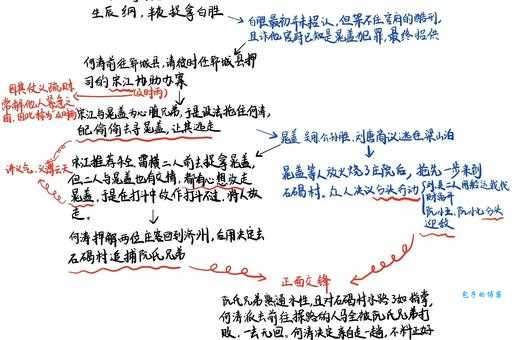 生辰纲，半夜捉拿白胜
白胜最初并未招认，但架不住官府的酷刑，
且诈他官府已知是晁盖犯罪，最终招供
何涛前往郓城县，请彼时任郓城县押
司的宋江协助办案
(及时雨)
因其仗义疏财
常解他人急
因此称为及时雨
宋江与晁盖为心腹兄弟，于是设法拖住何涛，
自己偷偷去寻晁盖，让其逃走
晁盖、吴用、公孙胜、刘唐商议逃往梁山泊
讲义气，义薄云天
宋江推荐朱仝、雷横二人前去捉拿晁盖，
但二人与晁盖也有交情，都有心想放走
晁盖，于是在打斗中故作打斗不过，将人放
走。
晁盖等人放火烧了庄院后，抢先一步来到
石碣村。众人决议分头行动
阮小五、阮小七分头
迎敌
何涛押解两位庄客回到济州，启用决定去
石碣村追捕阮氏兄弟
正面交锋
包子的博客
阮氏兄弟熟通水性，且对石碣村水路了如指掌，
何涛派去前往探路的人马全被阮氏兄弟打
败，一去无回。何涛决定亲自走一趟，不料正好